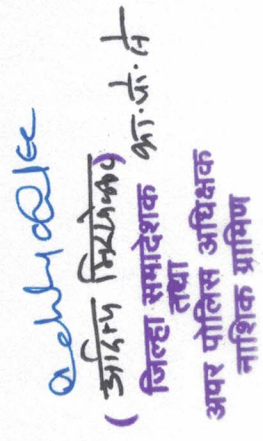 (आदित्य मिरखेलकर)
जिल्हा समादेशक
तथा
अपर पोलिस अधिक्षक
नाशिक ग्रामिण